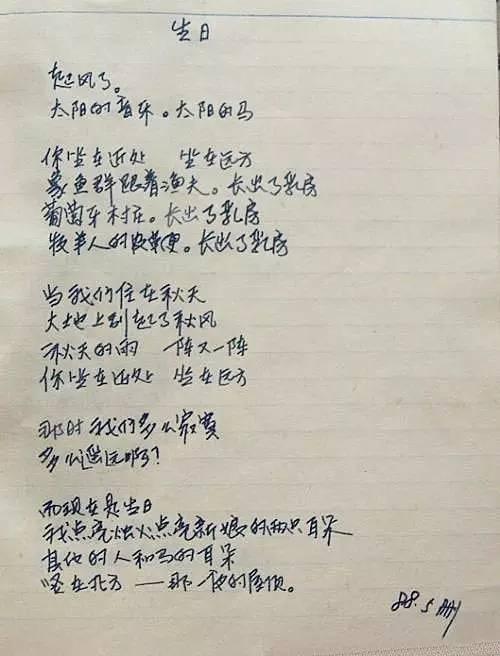 生日
起风了。
太阳的音乐。太阳的马
你坐在近处 坐在远方
象鱼群跟着渔夫。长出了乳房
葡萄牙村庄。长出了乳房
牧羊人的皮。长出了乳房
当我们住在秋天
大地上刮起了秋风
秋天的雨 一阵又一阵
你坐在近处 坐在远方
那时我们多么寂寞
多么遥远啊?
而现在是生日
我点亮烛火点亮新娘的两只耳朵
其他的人和马的耳朵
竖在北方——那一夜的屋顶。
88.5